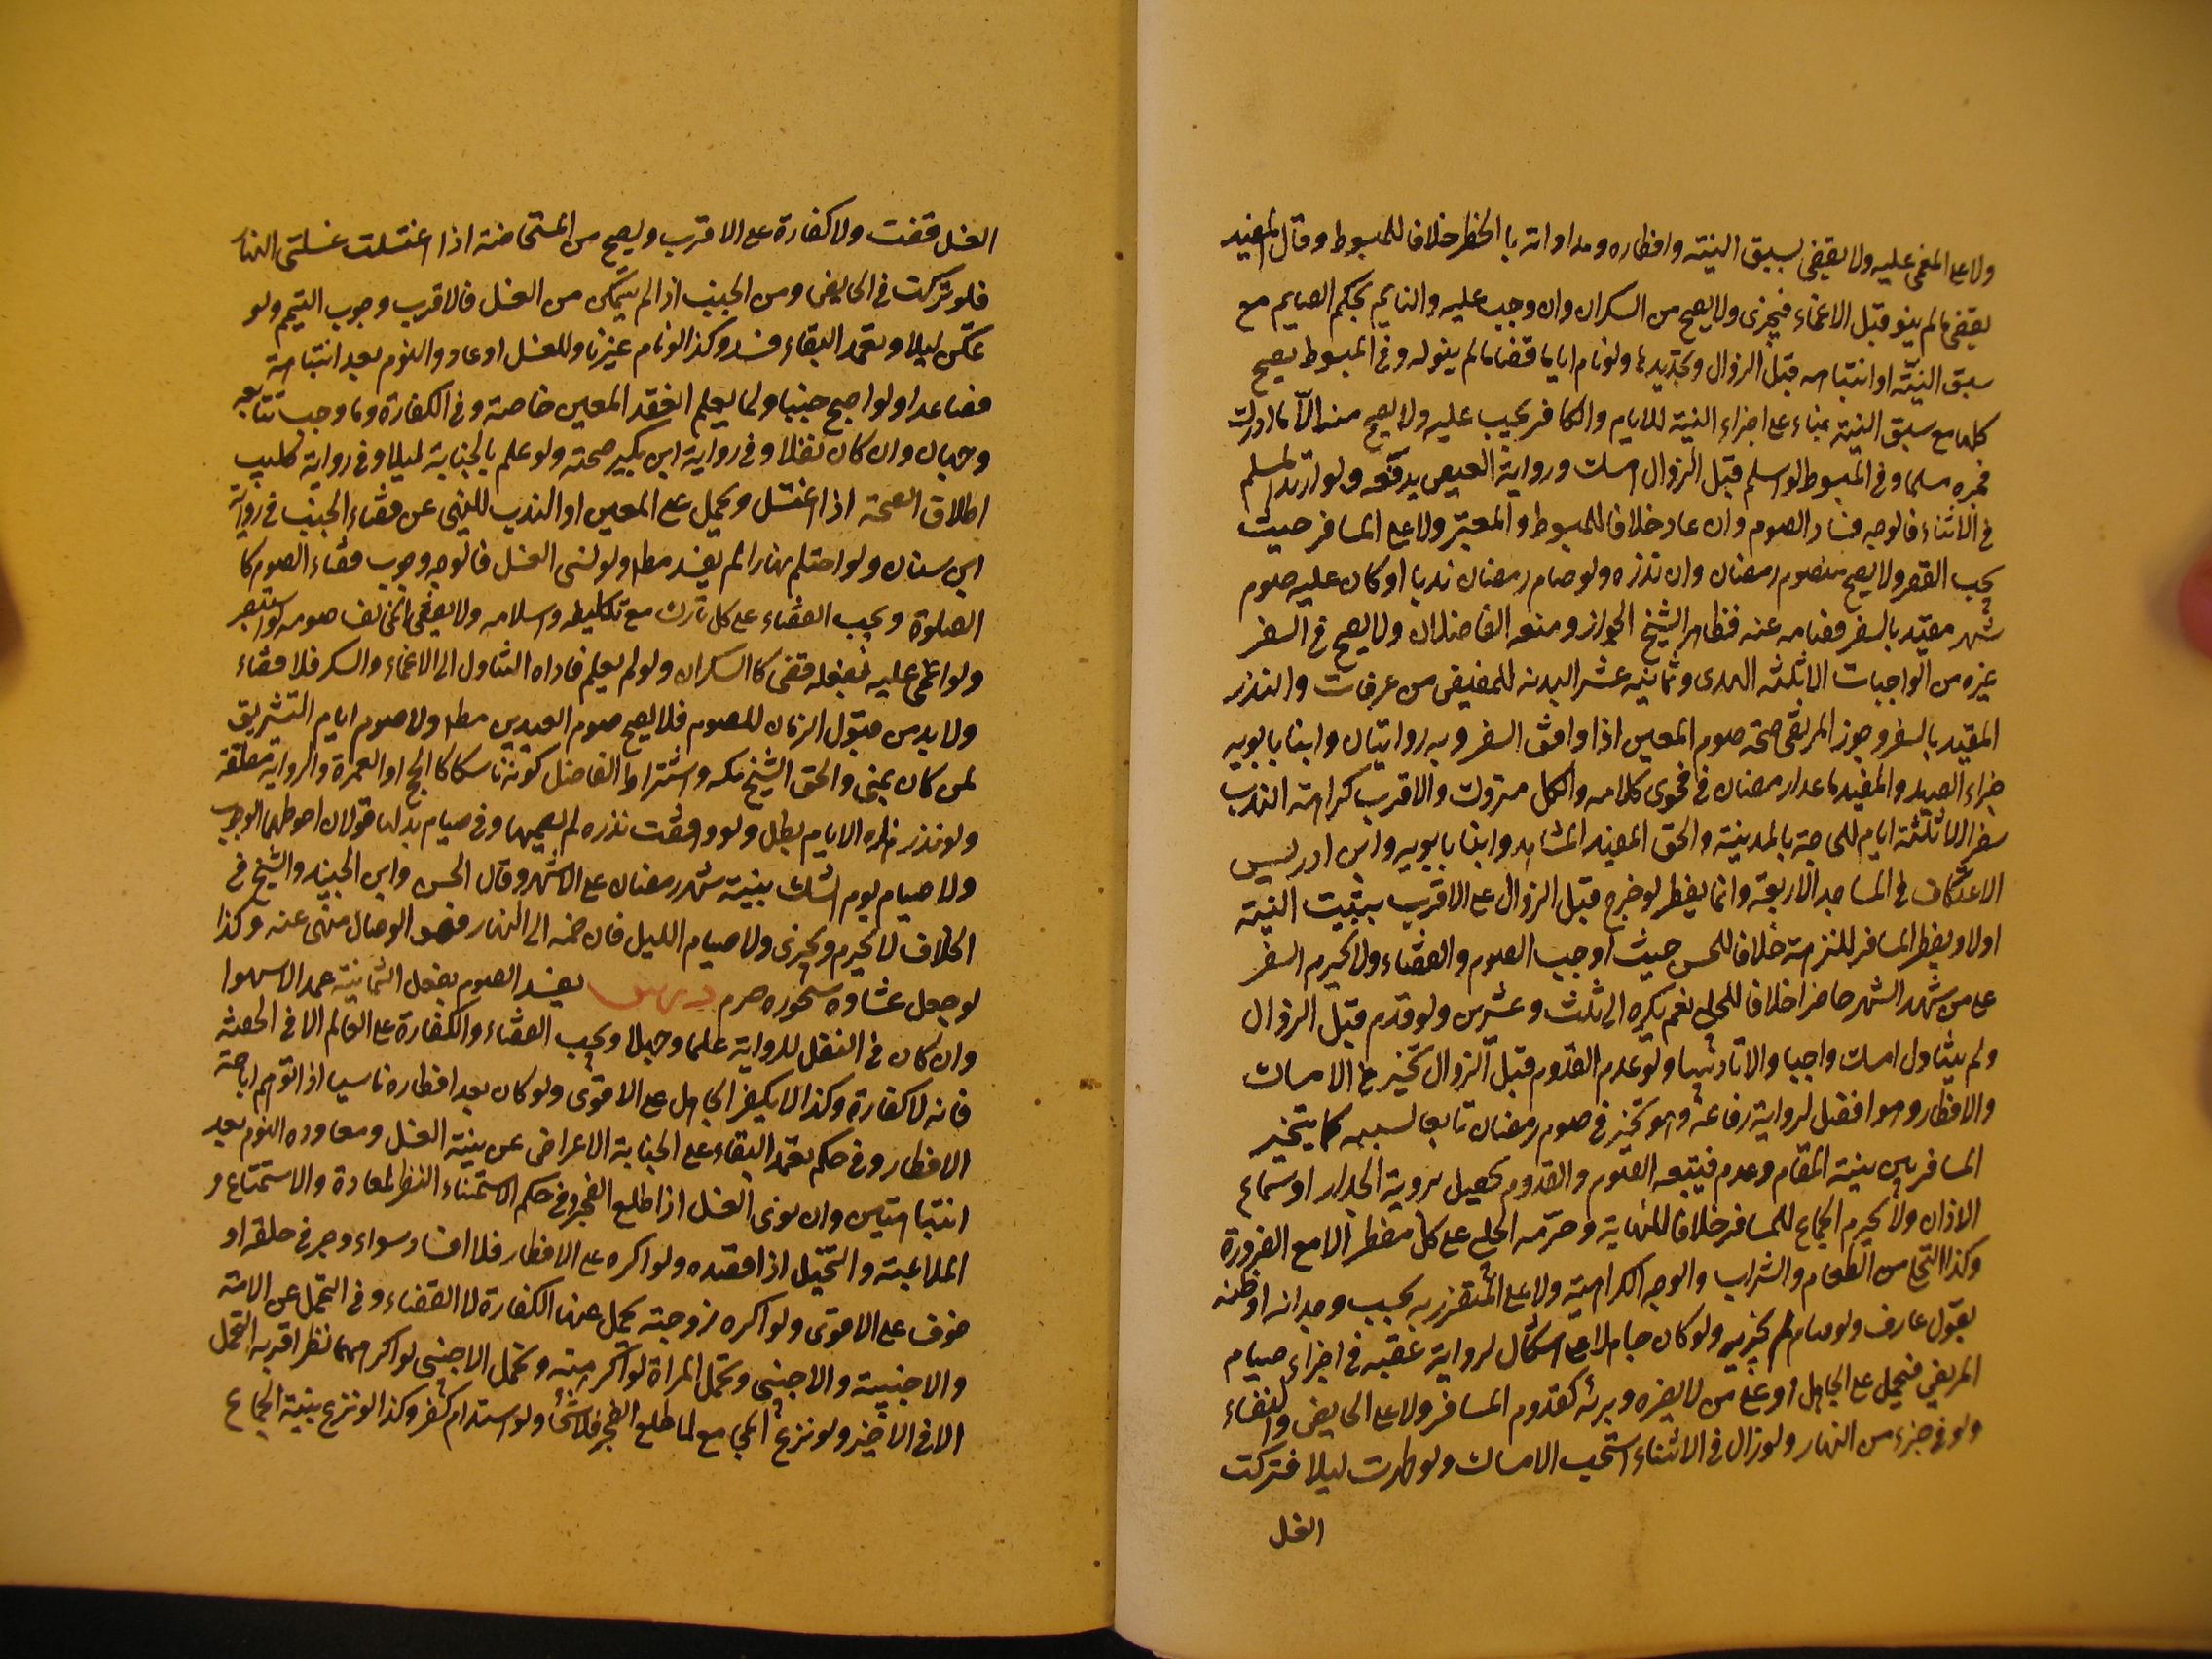 ولا على المغمى عليه ولا يقضى لسبق النية وافطاره ومداواته با لحظر خلافا للمبسوط وقال المفيد
يقضى ما لم ينو قبل الاغماء فيجزى ولا يصح من السكران وان وجب عليه والنايم بحكم الصايم مع
سبق النية او انتباهه قبل الزوال وتجديدها ولو نام اياما قضا ما لم ينو له وفى المبسوط يصح
كلها مع سبق النية بناء على اجزاء النية للايام والكافر يجب عليه ولا يصح منه الا ما ادرك
فجره مسلما وفى المبسوط لو اسلم قبل الزوال امسك ورواية العيص يدفعه ولو ارتد المسلم
فى الاثناء فالوجه فساد الصوم وان عاد خلافا للمبسوط والمعتبر ولا على المسافر حيث
يجب القصر ولا يصح منه صوم رمضان وان نذره ولو صام رمضان ندبا او كان عليه صوم
شهر مقيد بالسفر فصامه عنه فظاهر الشيخ الجواز ومنعه الفاضلان ولا يصح فى السفر
غيره من الواجبات الا ثلثة الهدى وثمانية عشر البدنه للمفيض من عرفات والنذر
المقيد بالسفر وجوز المرتضى صحة صوم المعين اذا وافق السفر وبه روايتان وابنا بابويه
جزاء الصيد والمفيد ما عدا رمضان فى فحوى كلامه والكل متروك والاقرب كراهة الندب
سفرا الا ثلثة ايام للحاجة بالمدينة والحق المفيد المشاهد وابنا بابويه وابن ادريس
الاعتكاف فى المساجد الاربعة وانما يفطر لو خرج قبل الزوال على الاقرب بتبييت النية
اولا ويفطر المسافر للنزهة خلافا للحسن حيث اوجب الصوم والقضاء ولا يحرم السفر
على من شهد الشهر حاضرا خلافا للحلبى نعم يكره الى ثلث وعشرين ولو قدم قبل الزوال
ولم يتناول امسك واجبا والا تاديبا ولو علم القدوم قبل الزوال تخير فى الامساك
والافطار وهو افضل لرواية رفاعة وهو تخير فى صوم رمضان تابعا لسببه كما يتخير
المسافر بين نية المقام وعدمه فيتبعه الصوم والقدوم يحصل بروية الجدار او سماع
الاذان ولا يحرم الجماع للمسافر خلافا للنهاية وحرمه الحلبى على كل مفطر الا مع الضرورة
وكذا التملى من الطعام والشراب والوجه الكراهية ولا على المتضرر به بحسب وجدانه او ظنه
بقول عارف ولو صام لم يجزيه ولو كان جاهلا على اشكال لرواية عقبة فى اجزاء صيام
المريض فيحمل على الجاهل او على من لا يضره وبرئه كقدوم المسافر ولا على الحايض والنفساء
ولو فى جزء من النهار ولو زال فى الاثناء استحب الامساك ولو طهرت ليلا فتركت
الغسل
الغسل قضت ولا كفارة على الاقرب ويصح من المستحاضة اذا اغتسلت غسلتى النهار
فلو تركت فى الحايض ومن الجنب اذا لم يتمكن من الغسل فالاقرب وجوب التيمم ولو
تمكن ليلا وتعمد البقاء فسد وكذا لو نام غير ناو للغسل او عاود النوم بعد انتباهة
فصاعدا ولو اصبح جنبا ولما يعلم انعقد المعين خاصة وفى الكفارة وما وجب تتابعه
وجهان وان كان نفلا وفى رواية ابن بكير صحته ولو علم بالجنابة ليلا وفى رواية كليب
اطلاق الصحة اذا اغتسل ويحمل على المعين او الندب للنهى عن قضاء الجنب فى رواية
ابن سنان ولو احتلم نهارا لم يفسد مطلا ولو نسى الغسل فالوجه وجوب قضاء الصوم كا
الصلوة ويجب القضاء على كل تارك مع تكليفه واسلامه ولا يقضى المخالف صومه لو استبصر
ولو اغمى عليه بفعله قضى كالسكران ولو لم يعلم فاداه التناول الى الاغماء والسكر فلا قضاء
ولا بد من قبول الزمان للصوم فلا يصح صوم العيدين مطلا ولا صوم ايام التشريق
لمن كان بمنى والحق الشيخ مكه واشتراط الفاضل كونه ناسكا كالحج او العمرة والرواية مطلقة
ولو نذر هذه الايام بطل ولو وافقت نذره لم يصمها وفى صيام بدلها قولان احوطهما الوجوب
ولا صيام يوم الشك بنية شهر رمضان على الاشهر وقال الحسن وابن الجنيد والشيخ فى
الخلاف لا يحرم ويجزى ولا صيام الليل فان ضمه الى النهار فهو الوصال منهى عنه وكذا
لو جعل عشاوه سحوره حرم درس يفسد الصوم بفعل الثمانية عمدا لا سهوا
وان كان فى النفل للرواية علما وجهلا ويجب القضاء والكفارة على العالم الا فى الحقنة
فانه لا كفارة وكذا لا يكفر الجاهل على الاقوى ولو كان بعد افطاره ناسيا اذا توهم اباحة
الافطار وفى حكم تعمد البقاء على الجنابة الاعراض عن نية الغسل ومعاوده النوم بعد
انتباهتين وان نوى الغسل اذا طلع الفجر وفى حكم الاستمناء النظر لمعادة والاستمتاع و
الملاعبة والتخيل اذا قصده ولو اكره على الافطار فلا افساد سواء وجر فى حلقه او
خوف على الاقوى ولو اكره زوجته تحمل عنها الكفارة لا القضاء وفى التحمل عن الامة
والاجنبية والاجنبى وتحمل المراة لو اكرهته وتحمل الاجنبى لو اكرههما نظر اقربه التحمل
الا فى الاخير ولو نزع المجامع لما طلع الفجر فلا شئ ولو استدام كفر وكذا لو نزع بنية الجماع